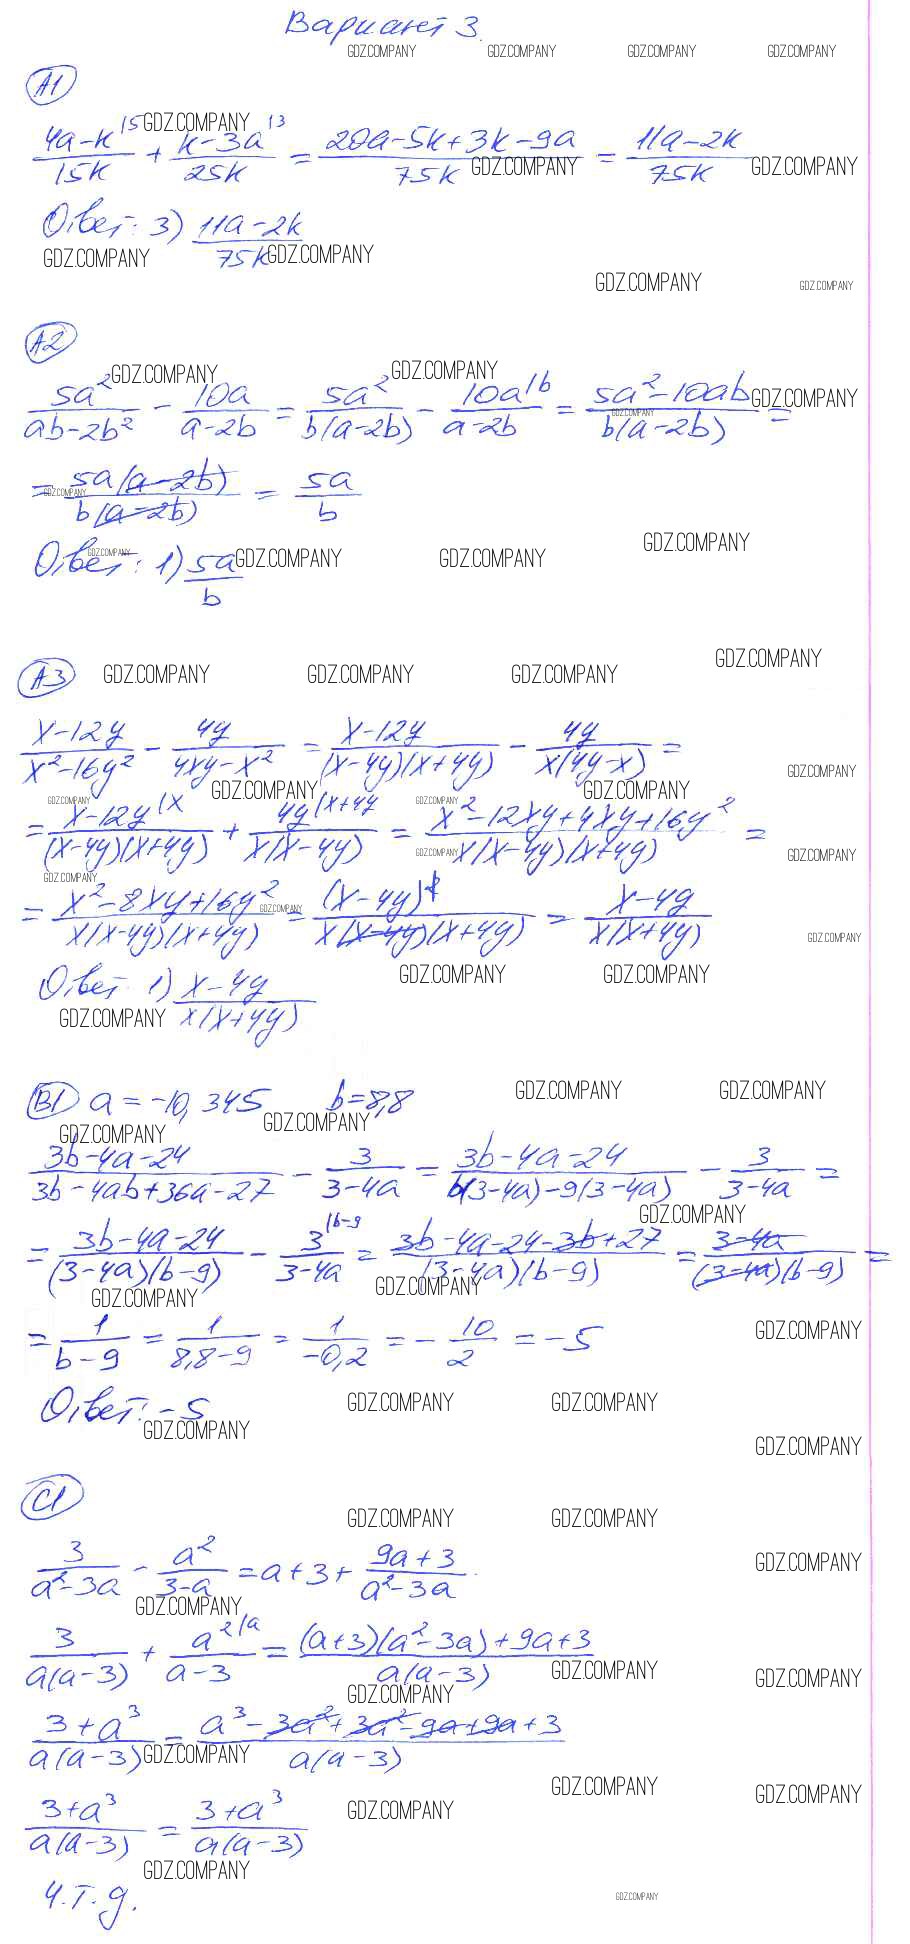 Вариант 3.
GDZ.COMPANY GDZ.COMPANY GDZ.COMPANY GDZ.COMPANY
A1
GDZ.COMPANY
(4a-k)/(15k) |5 + (k-3a)/(25k) |3 = (20a-5k+3k-9a)/(75k) = (11a-2k)/(75k)
GDZ.COMPANY GDZ.COMPANY
Ответ: 3) (11a-2k)/(75k)
GDZ.COMPANY GDZ.COMPANY
GDZ.COMPANY GDZ.COMPANY
A2
GDZ.COMPANY GDZ.COMPANY
5a²/(ab-2b²) - 10a/(a-2b) = 5a²/(b(a-2b)) - 10a/(a-2b) |b = (5a²-10ab)/(b(a-2b)) =
GDZ.COMPANY GDZ.COMPANY
= 5a(a-2b)/(b(a-2b)) = 5a/b
GDZ.COMPANY
Ответ: 1) 5a/b
GDZ.COMPANY GDZ.COMPANY GDZ.COMPANY GDZ.COMPANY
A3
GDZ.COMPANY GDZ.COMPANY GDZ.COMPANY GDZ.COMPANY
(x-12y)/(x²-16y²) - 4y/(4xy-x²) = (x-12y)/((x-4y)(x+4y)) - 4y/(x(4y-x)) =
GDZ.COMPANY GDZ.COMPANY GDZ.COMPANY GDZ.COMPANY GDZ.COMPANY
= (x-12y)/((x-4y)(x+4y)) |x + 4y/(x(x-4y)) |x+4y = (x²-12xy+4xy+16y²)/(x(x-4y)(x+4y)) =
GDZ.COMPANY GDZ.COMPANY GDZ.COMPANY
= (x²-8xy+16y²)/(x(x-4y)(x+4y)) = (x-4y)²/(x(x-4y)(x+4y)) = (x-4y)/(x(x+4y))
GDZ.COMPANY GDZ.COMPANY
Ответ: 1) (x-4y)/(x(x+4y))
GDZ.COMPANY GDZ.COMPANY GDZ.COMPANY
B1 a = -10,345 b = 8,8
GDZ.COMPANY GDZ.COMPANY GDZ.COMPANY GDZ.COMPANY
(3b-4a-24)/(3b-4ab+36a-27) - 3/(3-4a) = (3b-4a-24)/(b(3-4a)-9(3-4a)) - 3/(3-4a) =
GDZ.COMPANY
= (3b-4a-24)/((3-4a)(b-9)) - 3/(3-4a) |b-9 = (3b-4a-24-3b+27)/((3-4a)(b-9)) = (3-4a)/((3-4a)(b-9)) =
GDZ.COMPANY GDZ.COMPANY
= 1/(b-9) = 1/(8,8-9) = 1/(-0,2) = -10/2 = -5
GDZ.COMPANY
Ответ: -5
GDZ.COMPANY GDZ.COMPANY GDZ.COMPANY
GDZ.COMPANY
C1
GDZ.COMPANY GDZ.COMPANY
3/(a²-3a) - a²/(3-a) = a+3+ (9a+3)/(a²-3a).
GDZ.COMPANY GDZ.COMPANY
3/(a(a-3)) + a²/(a-3) |a = ((a+3)(a²-3a)+9a+3)/(a(a-3))
GDZ.COMPANY GDZ.COMPANY GDZ.COMPANY
(3+a³)/(a(a-3)) = (a³-3a²+3a²-9a+9a+3)/(a(a-3))
GDZ.COMPANY GDZ.COMPANY GDZ.COMPANY
(3+a³)/(a(a-3)) = (3+a³)/(a(a-3))
GDZ.COMPANY GDZ.COMPANY
ч.т.д.
GDZ.COMPANY